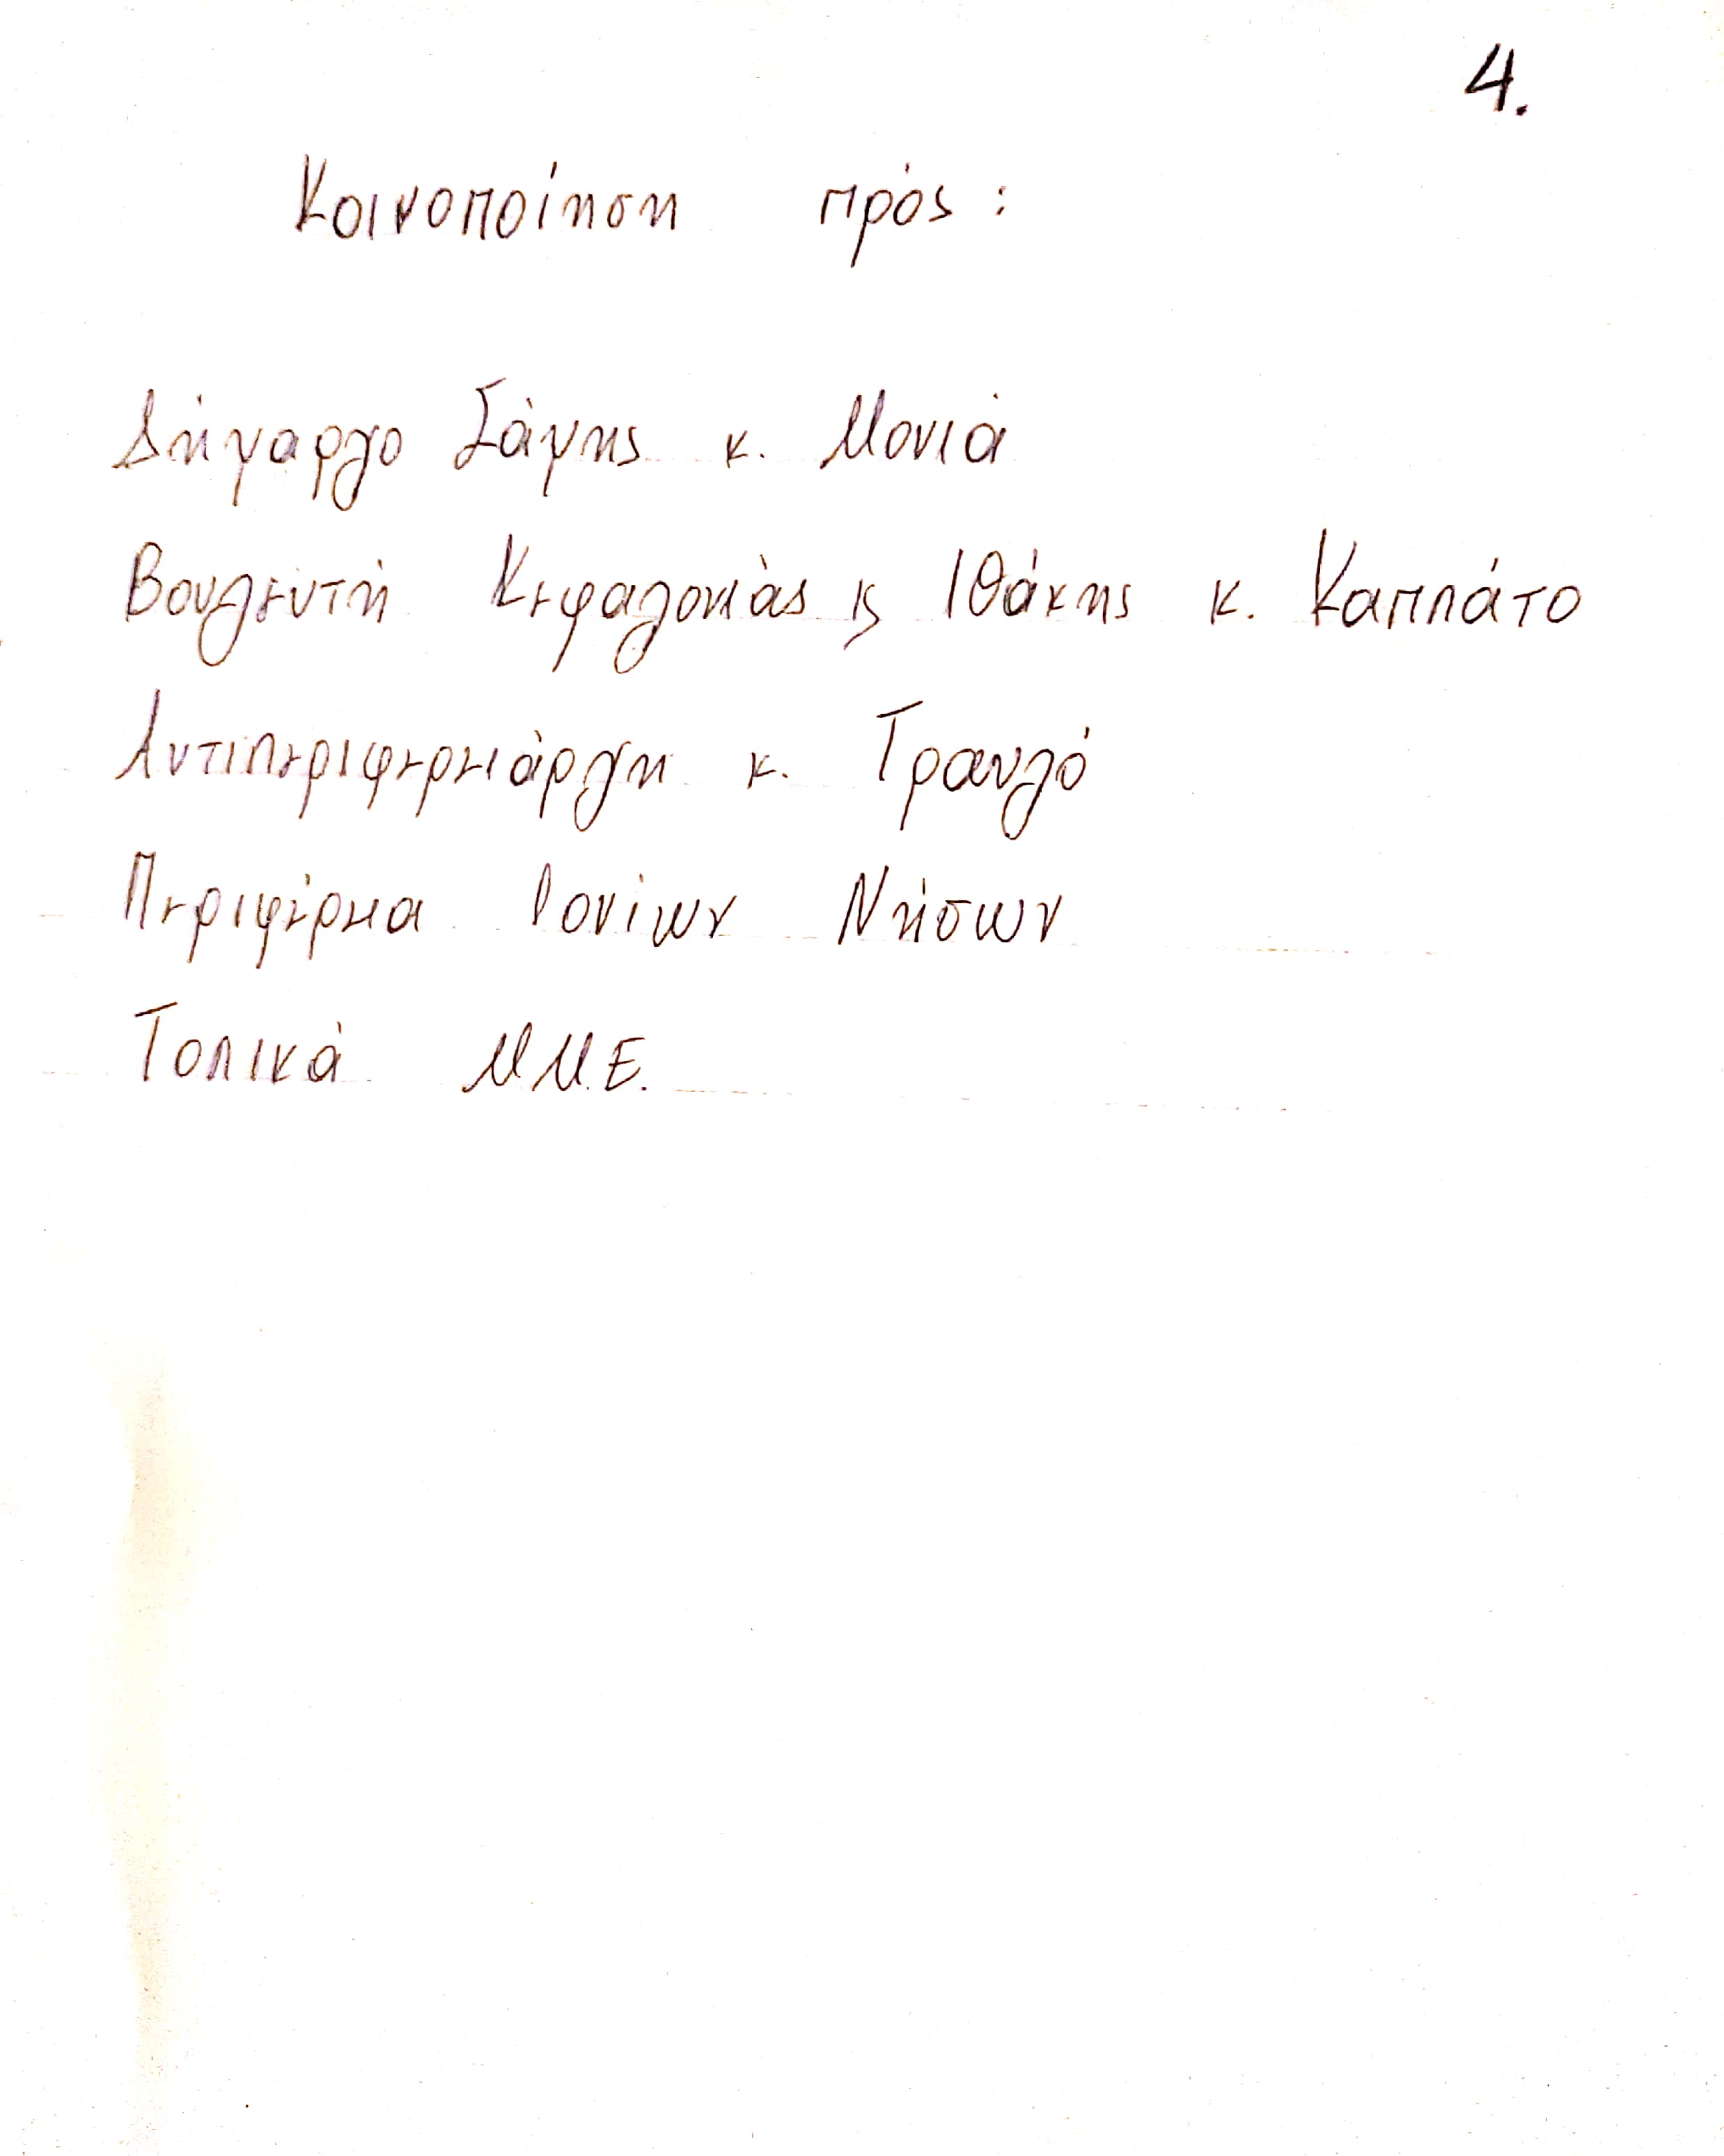 4.
Κοινοποίηση πρός :
Δήμαρχο Σάμης κ. Μονιά
Βουλευτή Κεφαλονιάς ϗ Ιθάκης κ. Καππάτο
Αντιπεριφερειάρχη κ. Τραυλό
Περιφέρεια Ιονίων Νήσων
Τοπικά Μ.Μ.Ε.